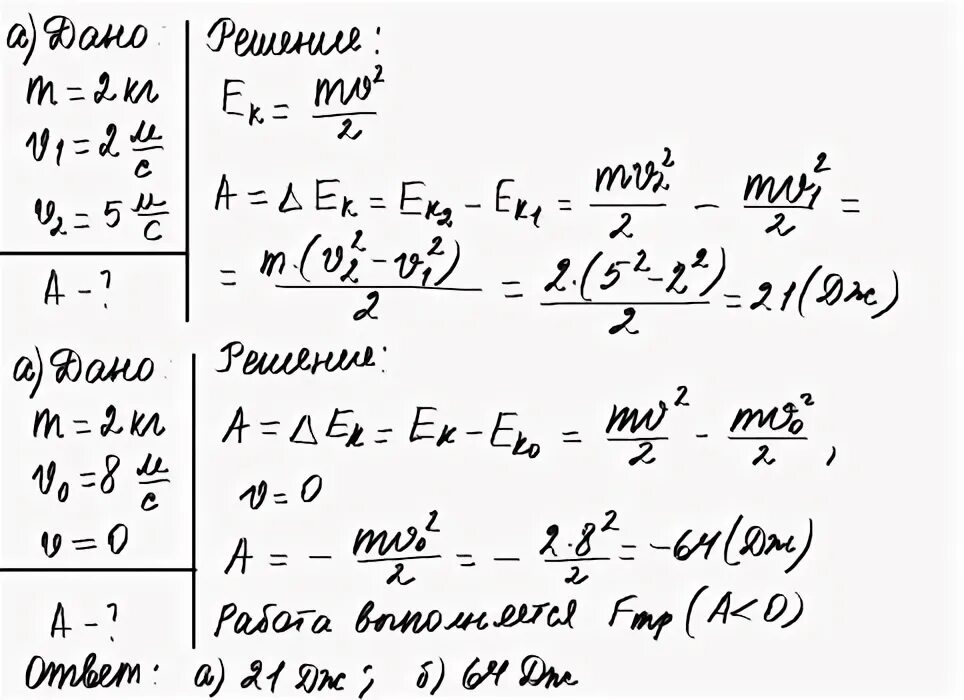 а) Дано:
m = 2 кг
v₁ = 2 м/с
v₂ = 5 м/с
A – ?
Решение:
Eк = mv²/2
A = ΔEк = Eк₂ – Eк₁ = mv₂²/2 – mv₁²/2 =
= m·(v₂² – v₁²)/2 = 2·(5² – 2²)/2 = 21 (Дж)
а) Дано:
m = 2 кг
v₀ = 8 м/с
v = 0
A – ?
Решение:
A = ΔEк = Eк – Eк₀ = mv²/2 – mv₀²/2 ,
v = 0
A = – mv₀²/2 = – 2·8²/2 = –64 (Дж)
Работа выполняется Fтр (A<0)
Ответ: а) 21 Дж ; б) 64 Дж